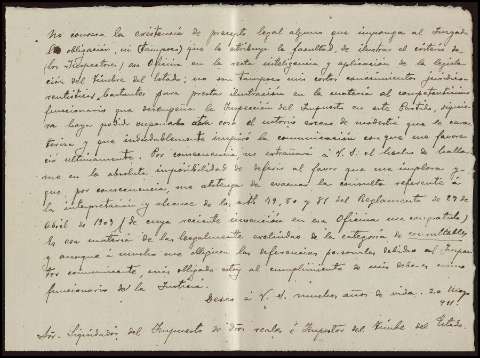 No conozco la existencia de precepto legal alguno que imponga al Juzgado
la obligación, ni (tampoco) que le atribuya la facultad de ilustrar el criterio de
los Inspectores en Oficina en la recta inteligencia y aplicación de la legisla-
ción del Timbre del Estado; no son tampoco mis cortos conocimientos jurídico
rentísticos, bastantes para prestar ilustración en la materia al competentísimo
funcionario que desempeña la Inspección del Impuesto en este Partido, siquie-
ra haya podido expresarlo así con el notorio exceso de modestia que le carac-
teriza y que indudablemente inspiró la comunicación con que me favore-
ció ultimamente. Por consecuencia no extrañará á V. S. el hecho de hallar-
me en la absoluta imposibilidad de deferir al favor que me implora y
que, por consecuencia, me abstenga de evacuar la consulta referente á
la interpretación y alcance de los arts 79, 80 y 81 del Reglamento de 29 de
Abril de 1909 (de cuya reciente invención en esa Oficina me congratulo)
los son materia de las legalmente excluidas de la categoría de consultables
y aunque á mucho me obliguen las deferencias personales debidas al Inspec-
tor comunicante, más obligado estoy al cumplimiento de mis deberes como
funcionario de la Justicia.
Deseo á V. S. muchos años de vida. 20 Mayo
911.
Sor. Liquidador del Impuesto de Dros reales é Inspector del Timbre del Estado.